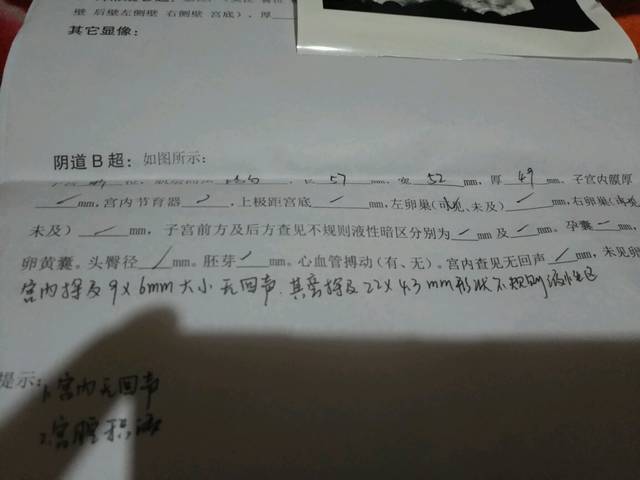 壁 后壁左侧壁 右侧壁 宫底）, 厚
其它显像：
阴道B超：如图所示：
57 mm, 宽 52 mm, 厚 49 mm. 子宫内膜厚
mm, 宫内节育器 , 上极距宫底 mm, 左卵巢(可见、未及) mm,右卵巢(可见
未及) mm, 子宫前方及后方查见不规则液性暗区分别为 mm 及 mm。孕囊 mm,
卵黄囊。头臀径 mm。胚芽 mm。心血管搏动（有、无）。宫内查见无回声 mm, 未见卵
宫内探及9×6mm大小无回声,其旁探及22×43mm形状不规则液性区
提示：1.宫内无回声
2.宫腔积液